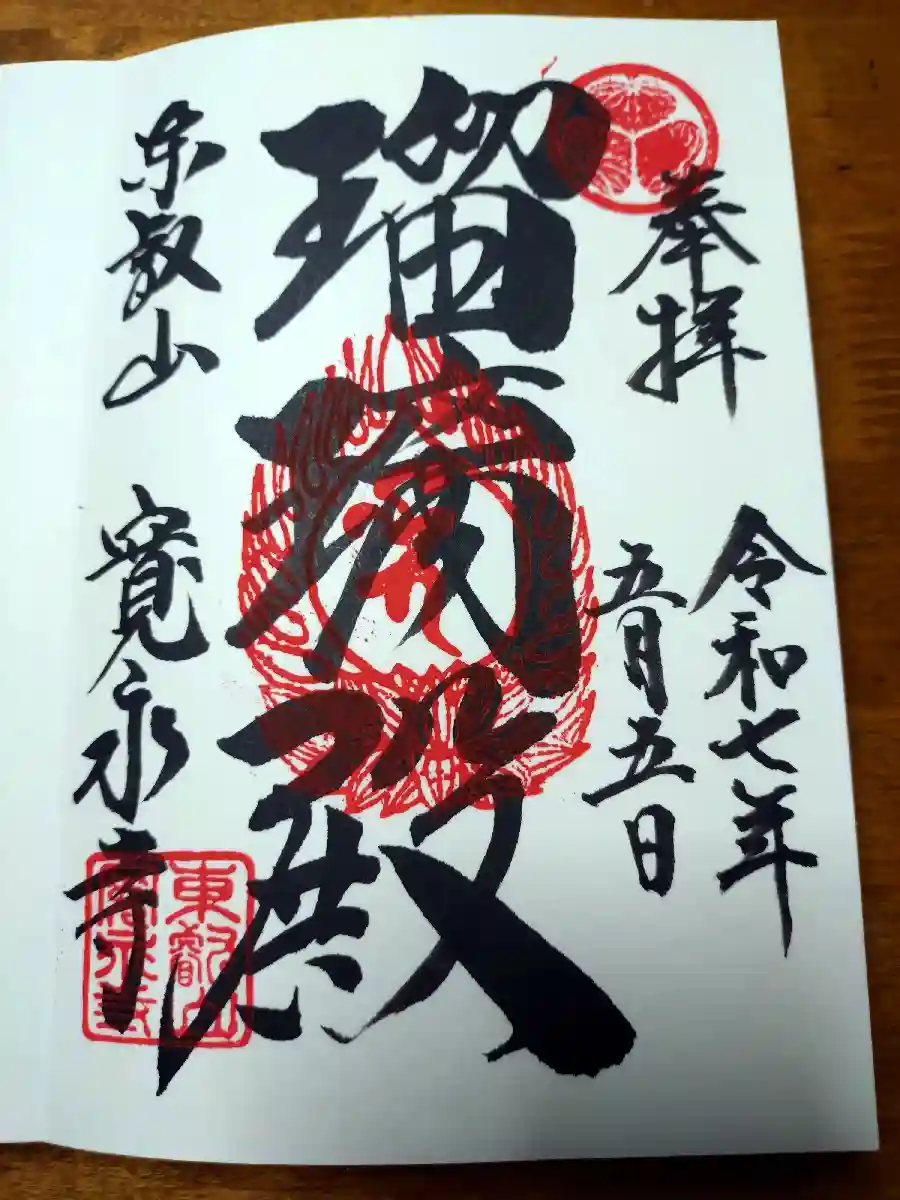 奉拝
令和七年
五月五日
瑠璃殿
东叡山
寛永寺
東叡山
寛永寺